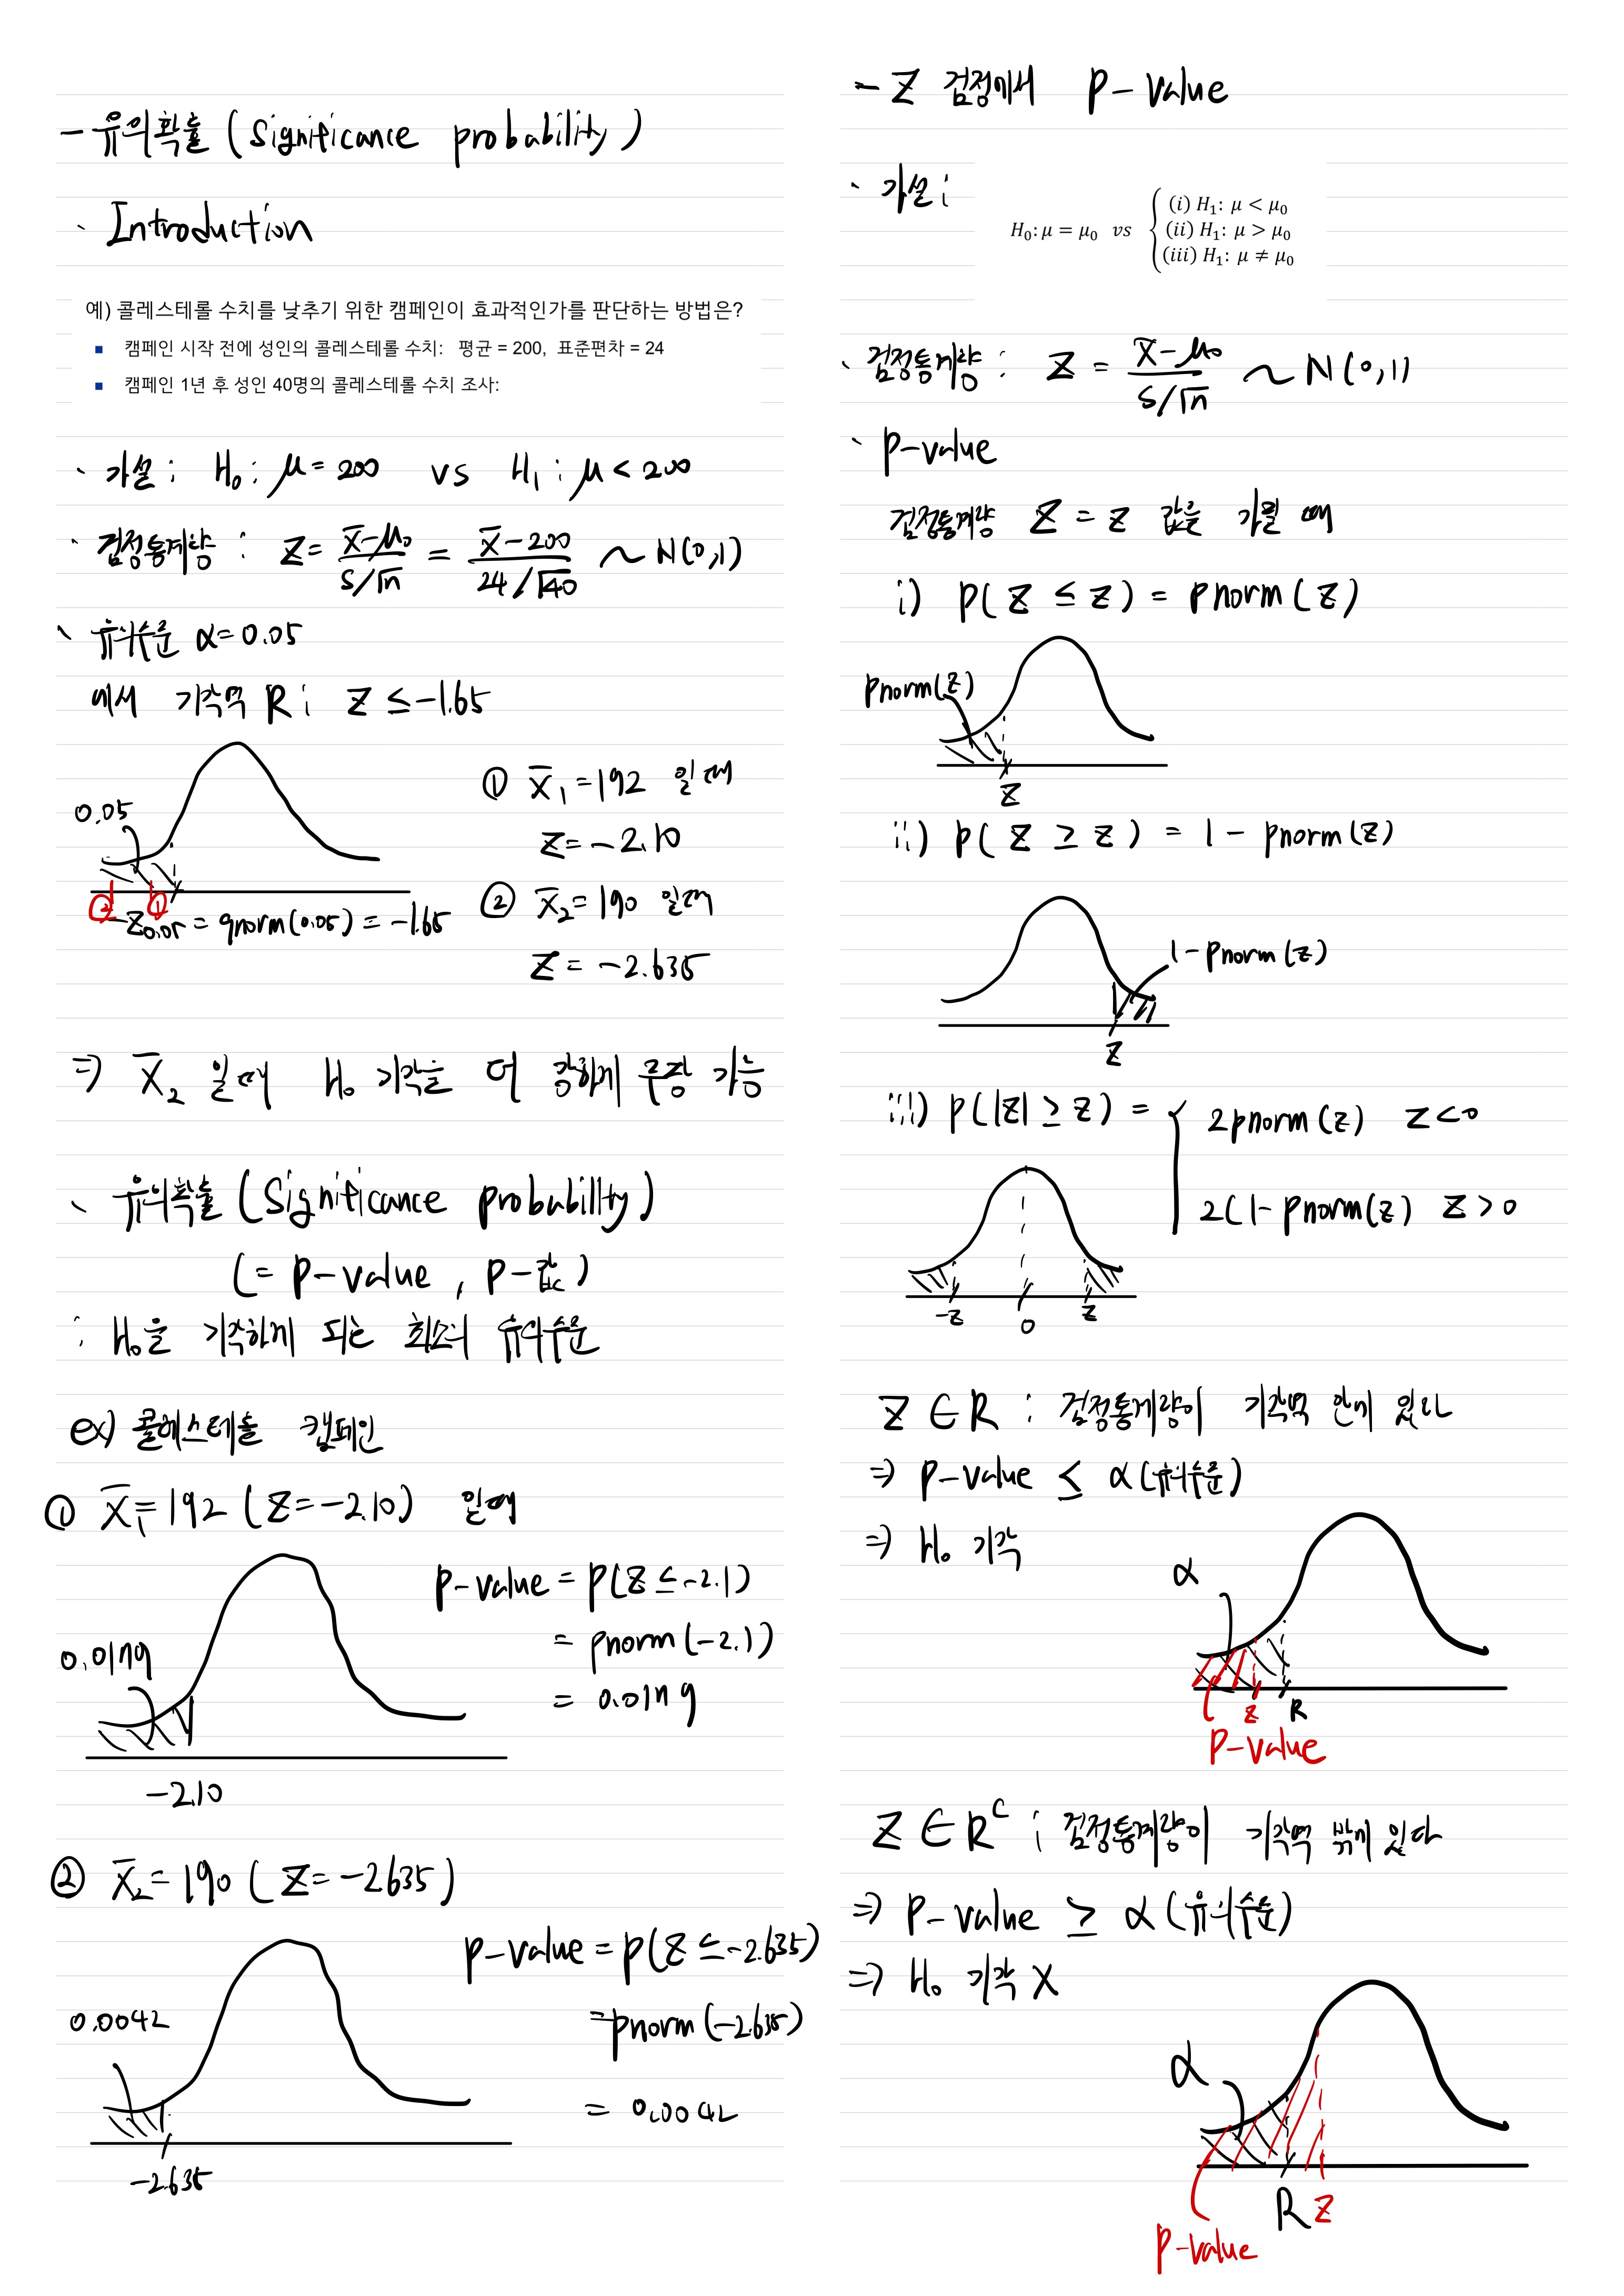 - 유의확률 (Significance probability)
· Introduction
예) 콜레스테롤 수치를 낮추기 위한 캠페인이 효과적인가를 판단하는 방법은?
▪ 캠페인 시작 전에 성인의 콜레스테롤 수치: 평균 = 200, 표준편차 = 24
▪ 캠페인 1년 후 성인 40명의 콜레스테롤 수치 조사:
· 가설 : H₀ : μ = 200 vs H₁ : μ < 200
· 검정통계량 : Z = (x̄-μ₀)/(S/√n) = (x̄-200)/(24/√40) ~ N(0,1)
· 유의수준 α = 0.05
에서 기각역 R : Z ≤ -1.65
0.05
② ①
-Z₀.₀₅ = qnorm(0.05) = -1.65
① x̄₁ = 192 일때
Z = -2.10
② x̄₂ = 190 일때
Z = -2.635
⇒ x̄₂ 일때 H₀ 기각을 더 강하게 주장 가능
· 유의확률 (Significance probability)
(= P-value , P-값)
: H₀을 기각하게 되는 최소의 유의수준
ex) 콜레스테롤 캠페인
① x̄₁ = 192 (Z = -2.10) 일때
0.0179
-2.10
P-value = P(Z ≤ -2.1)
= pnorm(-2.1)
= 0.0179
② x̄₂ = 190 (Z = -2.635)
0.0042
-2.635
P-value = P(Z ≤ -2.635)
= pnorm(-2.635)
= 0.0042
- Z 검정에서 P-value
· 가설 :
H₀: μ = μ₀ vs
(i) H₁: μ < μ₀
(ii) H₁: μ > μ₀
(iii) H₁: μ ≠ μ₀
· 검정통계량 : Z = (x̄-μ₀)/(S/√n) ~ N(0,1)
· P-value
검정통계량 Z = z 값을 가질 때
i) P(Z ≤ z) = pnorm(z)
pnorm(z)
z
ii) P(Z ≥ z) = 1 - pnorm(z)
1 - pnorm(z)
z
iii) P(|Z| ≥ z) =
2pnorm(z) z<0
2(1-pnorm(z) z>0
-z 0 z
Z ∈ R : 검정통계량이 기각역 안에 있다
⇒ P-value ≤ α (유의수준)
⇒ H₀ 기각
α
z R
P-value
Z ∈ Rᶜ : 검정통계량이 기각역 밖에 있다
⇒ P-value ≥ α (유의수준)
⇒ H₀ 기각 X
α
R z
P-value